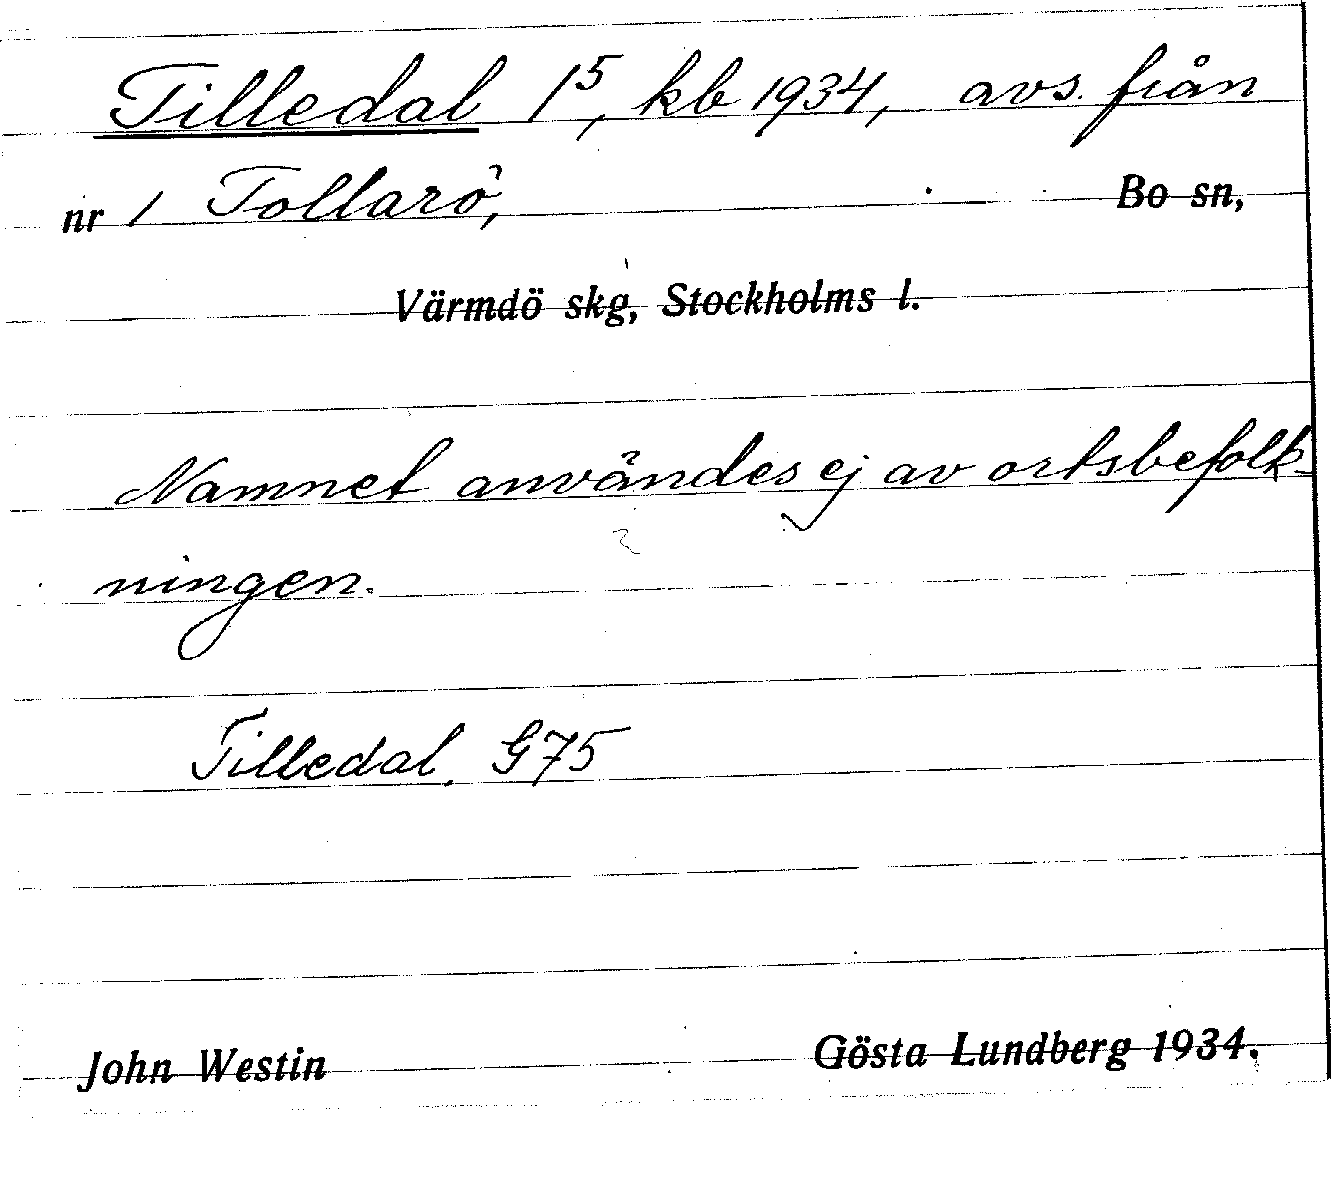 Tilledal 1⁵, kb 1934, avs. från
nr 1 Tollarö, Bo sn,
Värmdö skg, Stockholms l.
Namnet användes ej av ortsbefolk-
ningen.
Tilledal. G75
John Westin Gösta Lundberg 1934.